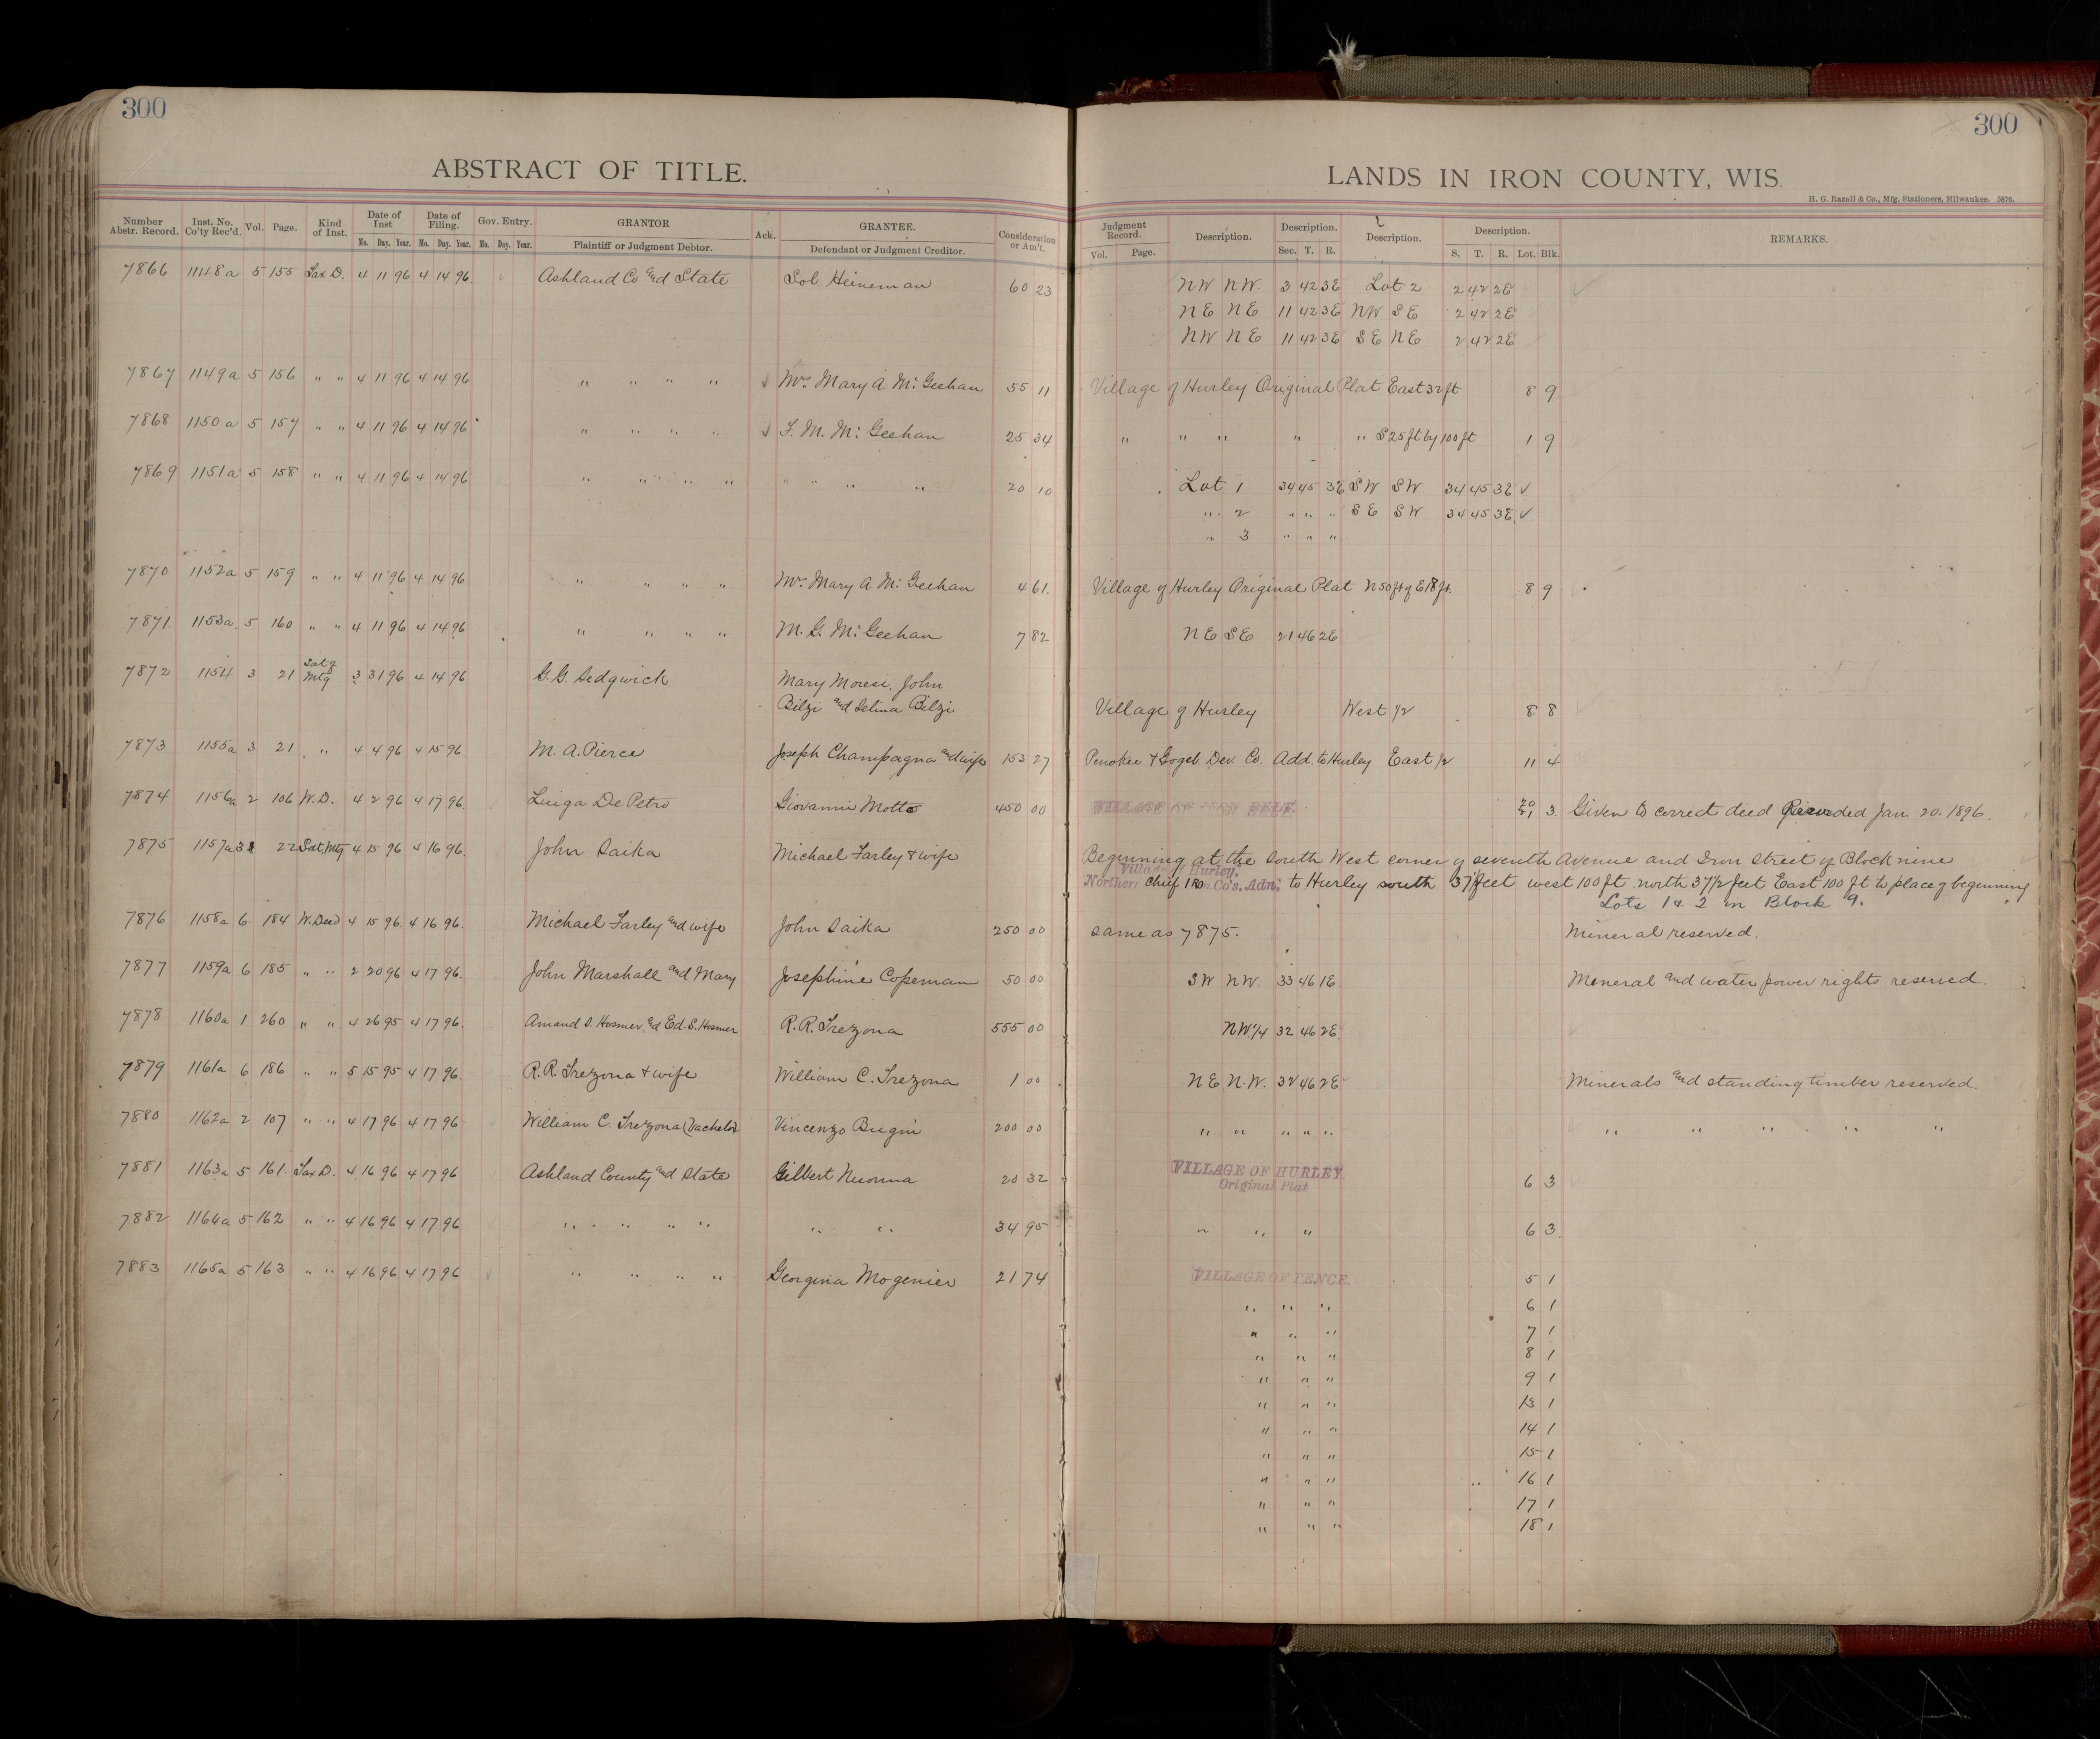 300
ABSTRACT OF TITLE.
Number Abstr. Record. Inst. No. Co'ty Rec'd. Vol. Page. Kind of Inst. Date of Inst Mo. Day. Year. Date of Filing. Mo. Day. Year. Gov. Entry. Mo. Day. Year. GRANTOR Plaintiff or Judgment Debtor. Ack. GRANTEE. Defendant or Judgment Creditor. Consideration or Am't.
7866 1148a 5 155 Tax D. 4 11 96 4 14 96 Ashland Co and State Sol. Heineman 60 23
7867 1149a 5 156 " " 4 11 96 4 14 96 " " " " Mrs Mary A. McGeehan 55 11
7868 1150a 5 157 " " 4 11 96 4 14 96 " " " " F. M. McGeehan 25 34
7869 1151a 5 158 " " 4 11 96 4 14 96 " " " " " " " " 20 10
7870 1152a 5 159 " " 4 11 96 4 14 96 " " " " Mrs Mary A. McGeehan 4 61
7871 1153a 5 160 " " 4 11 96 4 14 96 " " " " M. G. McGeehan 7 82
7872 1154 3 21 Sat of Mtg 3 31 96 4 14 96 G. G. Sedgwick Mary Moresi, John
Bilzi and Selina Bilzi
7873 1155a 3 21 " 4 4 96 4 15 96 M. A. Pierce Joseph Champagna and wife 153 27
7874 1156a 2 106 W. D. 4 2 96 4 17 96 Luiga De Petro Giovanni Motto 450 00
7875 1157a 3 22 Sat. Mtg 4 15 96 4 16 96 John Saika Michael Farley & wife
7876 1158a 6 184 W. Deed 4 15 96 4 16 96 Michael Farley and wife John Saika 250 00
7877 1159a 6 185 " " 2 20 96 4 17 96 John Marshall and Mary Josephine Copeman 50 00
7878 1160a 1 260 " " 4 26 95 4 17 96 Amand S. Hosmer and Ed. S. Hosmer R. R. Trezona 555 00
7879 1161a 6 186 " " 5 15 95 4 17 96 R. R. Trezona & wife William C. Trezona 1 00
7880 1162a 2 107 " " 4 17 96 4 17 96 William C. Trezona (bachelor Vincenzo Bugni 200 00
7881 1163a 5 161 Tax D. 4 16 96 4 17 96 Ashland County and State Gilbert Nuorma 20 32
7882 1164a 5 162 " " 4 16 96 4 17 96 " " " " " " 34 95
7883 1165a 5 163 " " 4 16 96 4 17 96 " " " " Georgina Mogenier 21 74
300
LANDS IN IRON COUNTY, WIS.
H. G. Razall & Co., Mfg. Stationers, Milwaukee. 5876.
Judgment Record. Vol. Page. Description. Description. Sec. T. R. Description. Description. S. T. R. Lot. Blk. REMARKS.
NW NW 3 42 3E Lot 2 2 42 2E
NE NE 11 42 3E NW SE 2 42 2E
NW NE 11 42 3E SE NE 2 42 2E
Village of Hurley Original Plat East 32 ft 8 9
" " " " " S 25 ft by 100 ft 1 9
Lot 1 34 45 3E SW SW 34 45 3E
" 2 " " " SE SW 34 45 3E
" 3 " " "
Village of Hurley Original Plat N 50 ft of E 18 ft. 8 9
NE SE 21 46 2E
Village of Hurley West 1/2 8 8
Penokee & Gogeb. Dev. Co. Add. to Hurley East 1/2 11 4
VILLAGE OF IRON BELT. 20 21 3 Given to correct deed Recorded Jan. 20. 1896.
Beginning at the South West corner of seventh Avenue and Iron Street of Block nine
Village of Hurley.
Northern Chief IRO Co's. Adn. to Hurley south 37 1/2 feet west 100 ft north 37 1/2 feet East 100 ft to place of beginning
Lots 1 & 2 in Block 9.
same as 7875. Mineral reserved.
SW NW. 33 46 1E Mineral and water power rights reserved.
NW 1/4 32 46 2E
NE N.W. 32 46 2E Minerals and standing timber reserved.
" " " " " " " " " "
VILLAGE OF HURLEY.
Original Plat 6 3
" " " 6 3
VILLAGE OF PENCE. 5 1
" " " 6 1
" " " 7 1
" " " 8 1
" " " 9 1
" " " 13 1
" " " 14 1
" " " 15 1
" " " 16 1
" " " 17 1
" " " 18 1